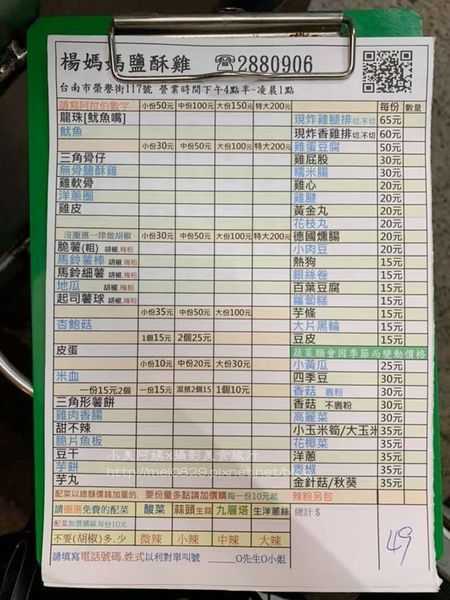 楊媽媽鹽酥雞 ☎2880906
台南市榮譽街117號 營業時間下午4點半~凌晨1點
請寫阿拉伯數字 小份50元 中份100元 大份150元 特大200元
龍珠[魷魚嘴]
魷魚
小份30元 中份50元 大份100元 特大200元
三角骨仔
無骨鹽酥雞
雞軟骨
洋蔥圈
雞皮
沒圈選一律做胡椒 小份30元 中份50元 大份100元 特大200元
脆薯(粗) 胡椒.梅粉
馬鈴薯棒 胡椒.梅粉
馬鈴細薯 胡椒.梅粉
地瓜 胡椒.梅粉
起司薯球 胡椒.梅粉
小份35元 中份50元 大份100元
杏鮑菇
1個15元 2個25元
皮蛋
小份10元 中份20元 大份30元
米血
一份15元2個 一份15元 混搭2個15 1個10元
三角形薯餅
雞肉香腸
甜不辣
脆片魚板
豆干
芋餅
芋丸
每份 數量
現炸雞腿排 切.不切 65元
現炸香雞排 切.不切 60元
雞蛋豆腐 50元
雞屁股 30元
糯米腸 30元
雞心 20元
雞腱 20元
黃金丸 20元
花枝丸 20元
德國燻腸 20元
小肉豆 20元
熱狗 15元
銀絲卷 15元
百葉豆腐 15元
蘿蔔糕 15元
芋條 15元
大片黑輪 15元
豆皮 15元
蔬菜類會因季節而變動價格
小黃瓜 25元
四季豆 30元
香菇 裹粉 30元
香菇 不裹粉 30元
高麗菜 30元
小玉米筍/大玉米 35元
花椰菜 35元
洋蔥 35元
青椒 35元
金針菇/秋葵 35元
辣粉另包
小美阿姨x攝影美食旅行
http://mei0829.pixnet.net/b
配菜以總額價錢加用的. 要份量多點請加價購 每一份10元起
請圈選免費的配菜 酸菜 蒜頭生蒜 九層塔 生洋蔥絲
配菜加價購區每份10元
不要(胡椒)多.少 微辣 小辣 中辣 大辣
總計$
49
請填寫電話號碼.姓式以利對單叫號 O先生O小姐